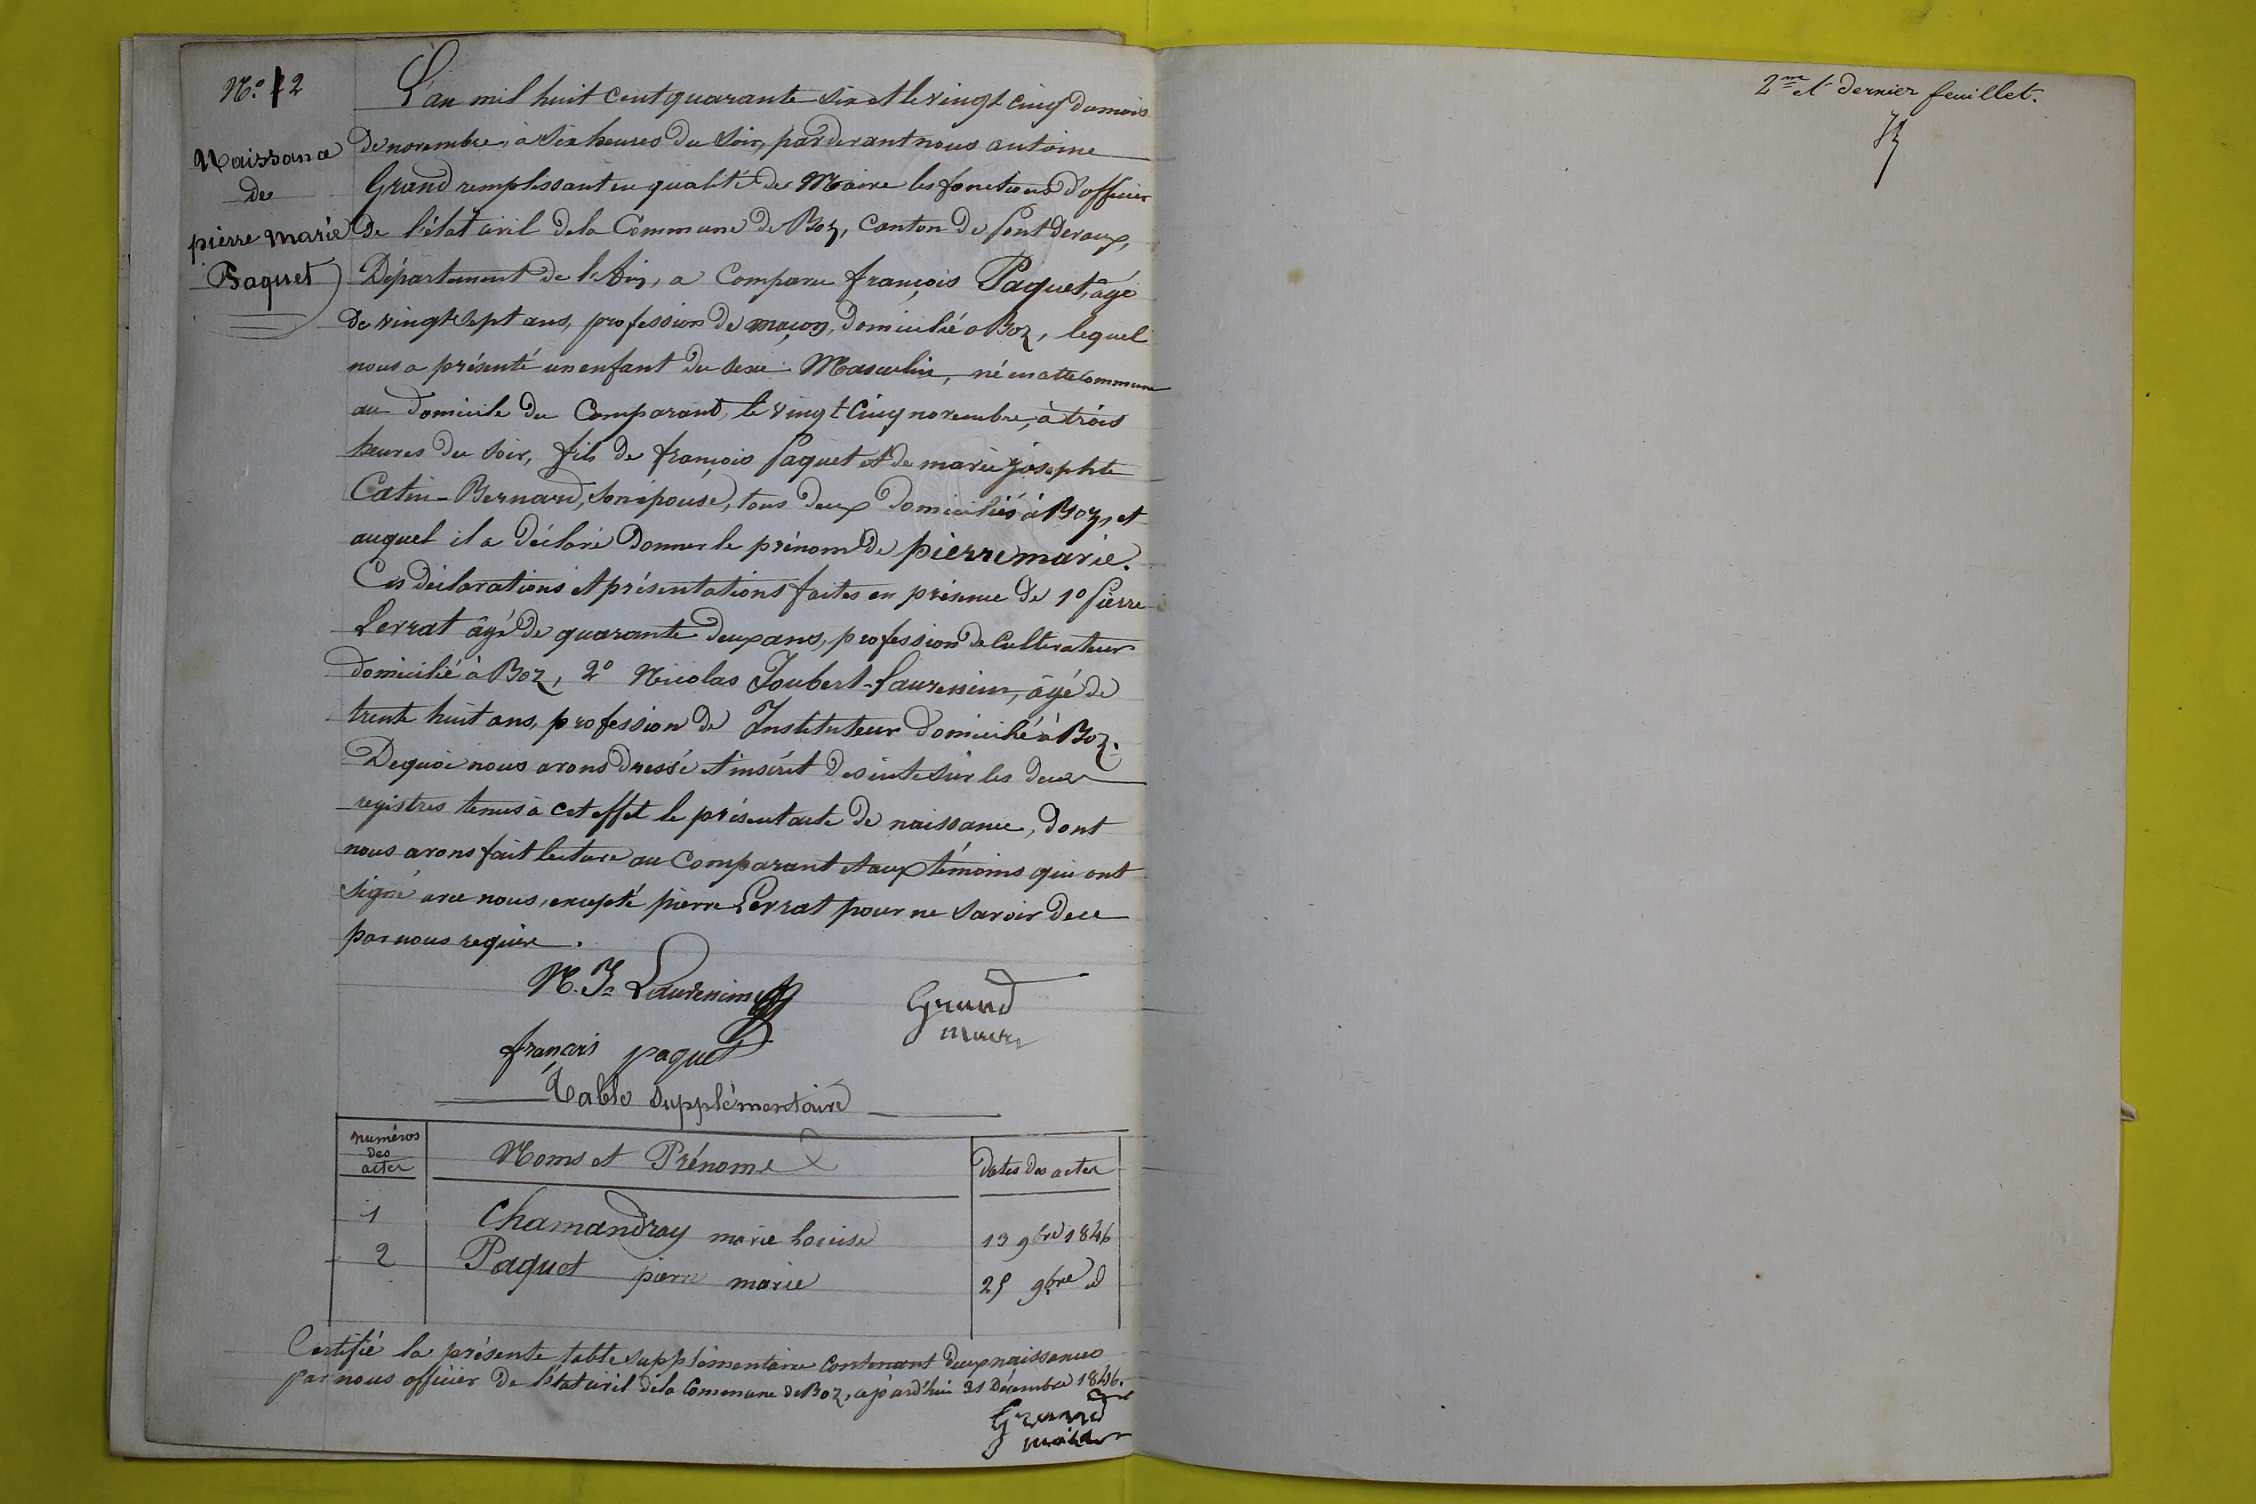 N.º 2
Naissance
de
pierre marie
Paquet
L'an mil huit cent quarante six et le vingt cinq du mois
de novembre, à six heures du soir, pardevant nous antoine
Grand remplissant en qualité de Maire les fonctions d'officier
de l'état civil de la Commune de Boz, canton de Pont devaux,
Département de l'Ain, a comparu françois Paquet, âgé
de vingt sept ans, profession de maçon, domicilié a Boz, lequel
nous a présenté un enfant du sexe Masculin, né en cette commune
au domicile du Comparant, le vingt cinq novembre, à trois
heures du soir, fils de françois Paquet et de marie josephte
Catin-Bernard, son épouse, tous deux domiciliés à Boz, et
auquel il a déclaré donner le prénom de pierre marie.
Ces déclarations et présentations faites en présence de 1º Pierre
Perrat âgé de quarante deux ans, profession de Cultivateur
domicilié à Boz, 2º Nicolas Joubert-Laurencin, âgé de
trente huit ans, profession de Instituteur domicilié à Boz.
De quoi nous avons dressé et inséré de suite sur les deux
registres tenus à cet effet le présent acte de naissance, dont
nous avons fait lecture au comparant et aux témoins qui ont
signé avec nous, excepté pierre Perrat pour ne savoir de ce
par nous requis.
N. J= Laurencin
Grand
maire
françois paquet
Table supplémentaire
numéros
des
actes
Noms et Prénoms
Dates des actes
1 Chamandray marie Louise 13 9bre 1846
2 Paquet pierre marie 25 9bre id
Certifié la présente table supplémentaire contenant deux naissances
par nous officier de l'état civil de la Commune de Boz, ce jourd'hui 31 Décembre 1846.
Grand
maire
2me et dernier feuillet.